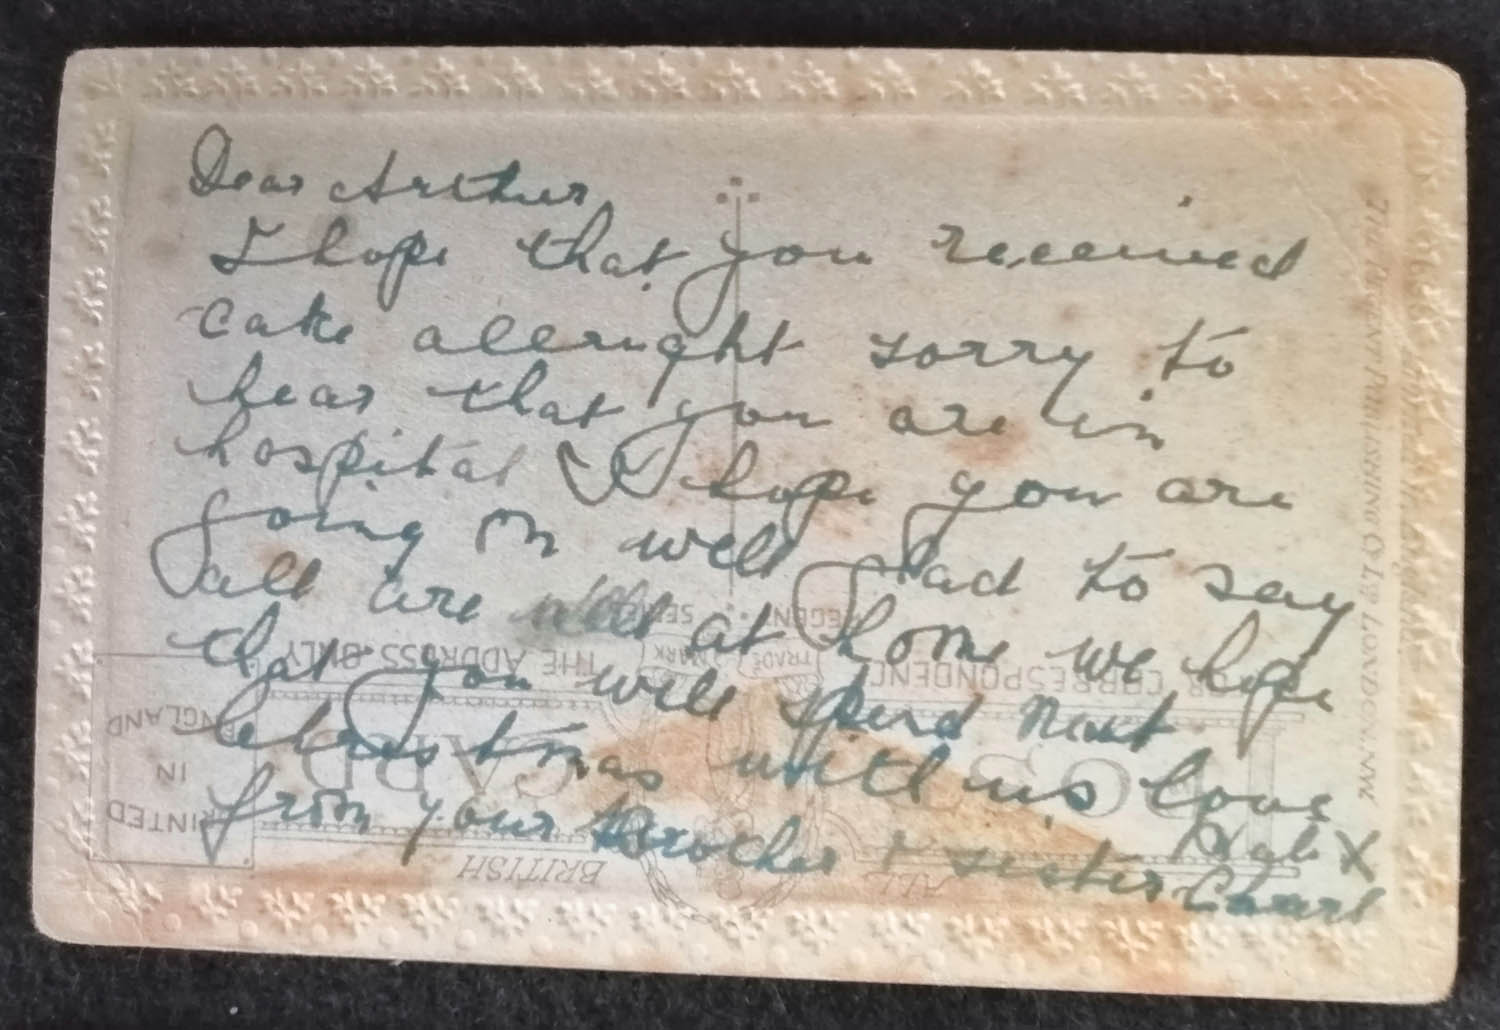 Dear Arthur,
I hope that you received
cake allright sorry to
hear that you are in
hospital I hope you are
going on well glad to say
all are well at home we hope
that you will spend next
Christmas with us love
from your Brother & sister
X
THE REGENT PUBLISHING CO LTD LONDON. NW
REGENT SERIES
TRADE MARK
FOR CORRESPONDENCE
THE ADDRESS ONLY
POST CARD
ALL BRITISH
PRINTED
IN
ENGLAND